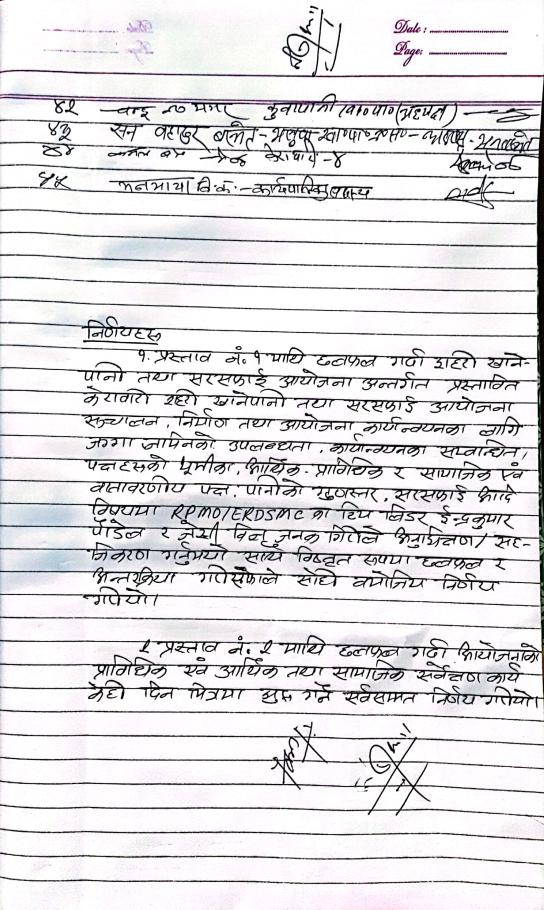 Date :
Page:
४२ मगर कुवापानी
४३ सन वहादुर बस्नेत-
४४ -४
४५ मनमाया वि.क. - कार्यपालिका सदस्य
निर्णयहरु
१. प्रस्ताव नं. १ माथि छलफल गर्दा शहरी खाने-
पानी तथा सरसफाई आयोजना अन्तर्गत प्रस्तावित
केरावारी शहरी खानेपानी तथा सरसफाई आयोजना
सञ्चालन, निर्माण तथा आयोजना कार्यन्वयनका लागि
जग्गा जमिनको उपलब्धता, कार्यान्वयनका सम्वान्धित,
पक्षहरुको भूमीका, आर्थिक- प्राविधिक र सामाजिक एवं
वातावरणीय पक्ष, पानीको गुणस्तर, सरसफाई आदि
विषयमा RPMO/ERDSMC का टिम लिडर ईन्द्रकुमार
पौडेल र जनक गौतमले
गर्नुभयो साथै विस्तृत रुपमा छलफल र
अन्तरक्रिया गरीसकेपछि सोही वमोजिम निर्णय
गरियो।
२ प्रस्ताव नं. २ माथि छलफल गर्दा आयोजनाको
प्राविधिक एवं आर्थिक तथा सामाजिक सर्वेक्षण कार्य
केही दिन भित्रमा शुरु गर्ने सर्वसम्मत निर्णय गरियो।